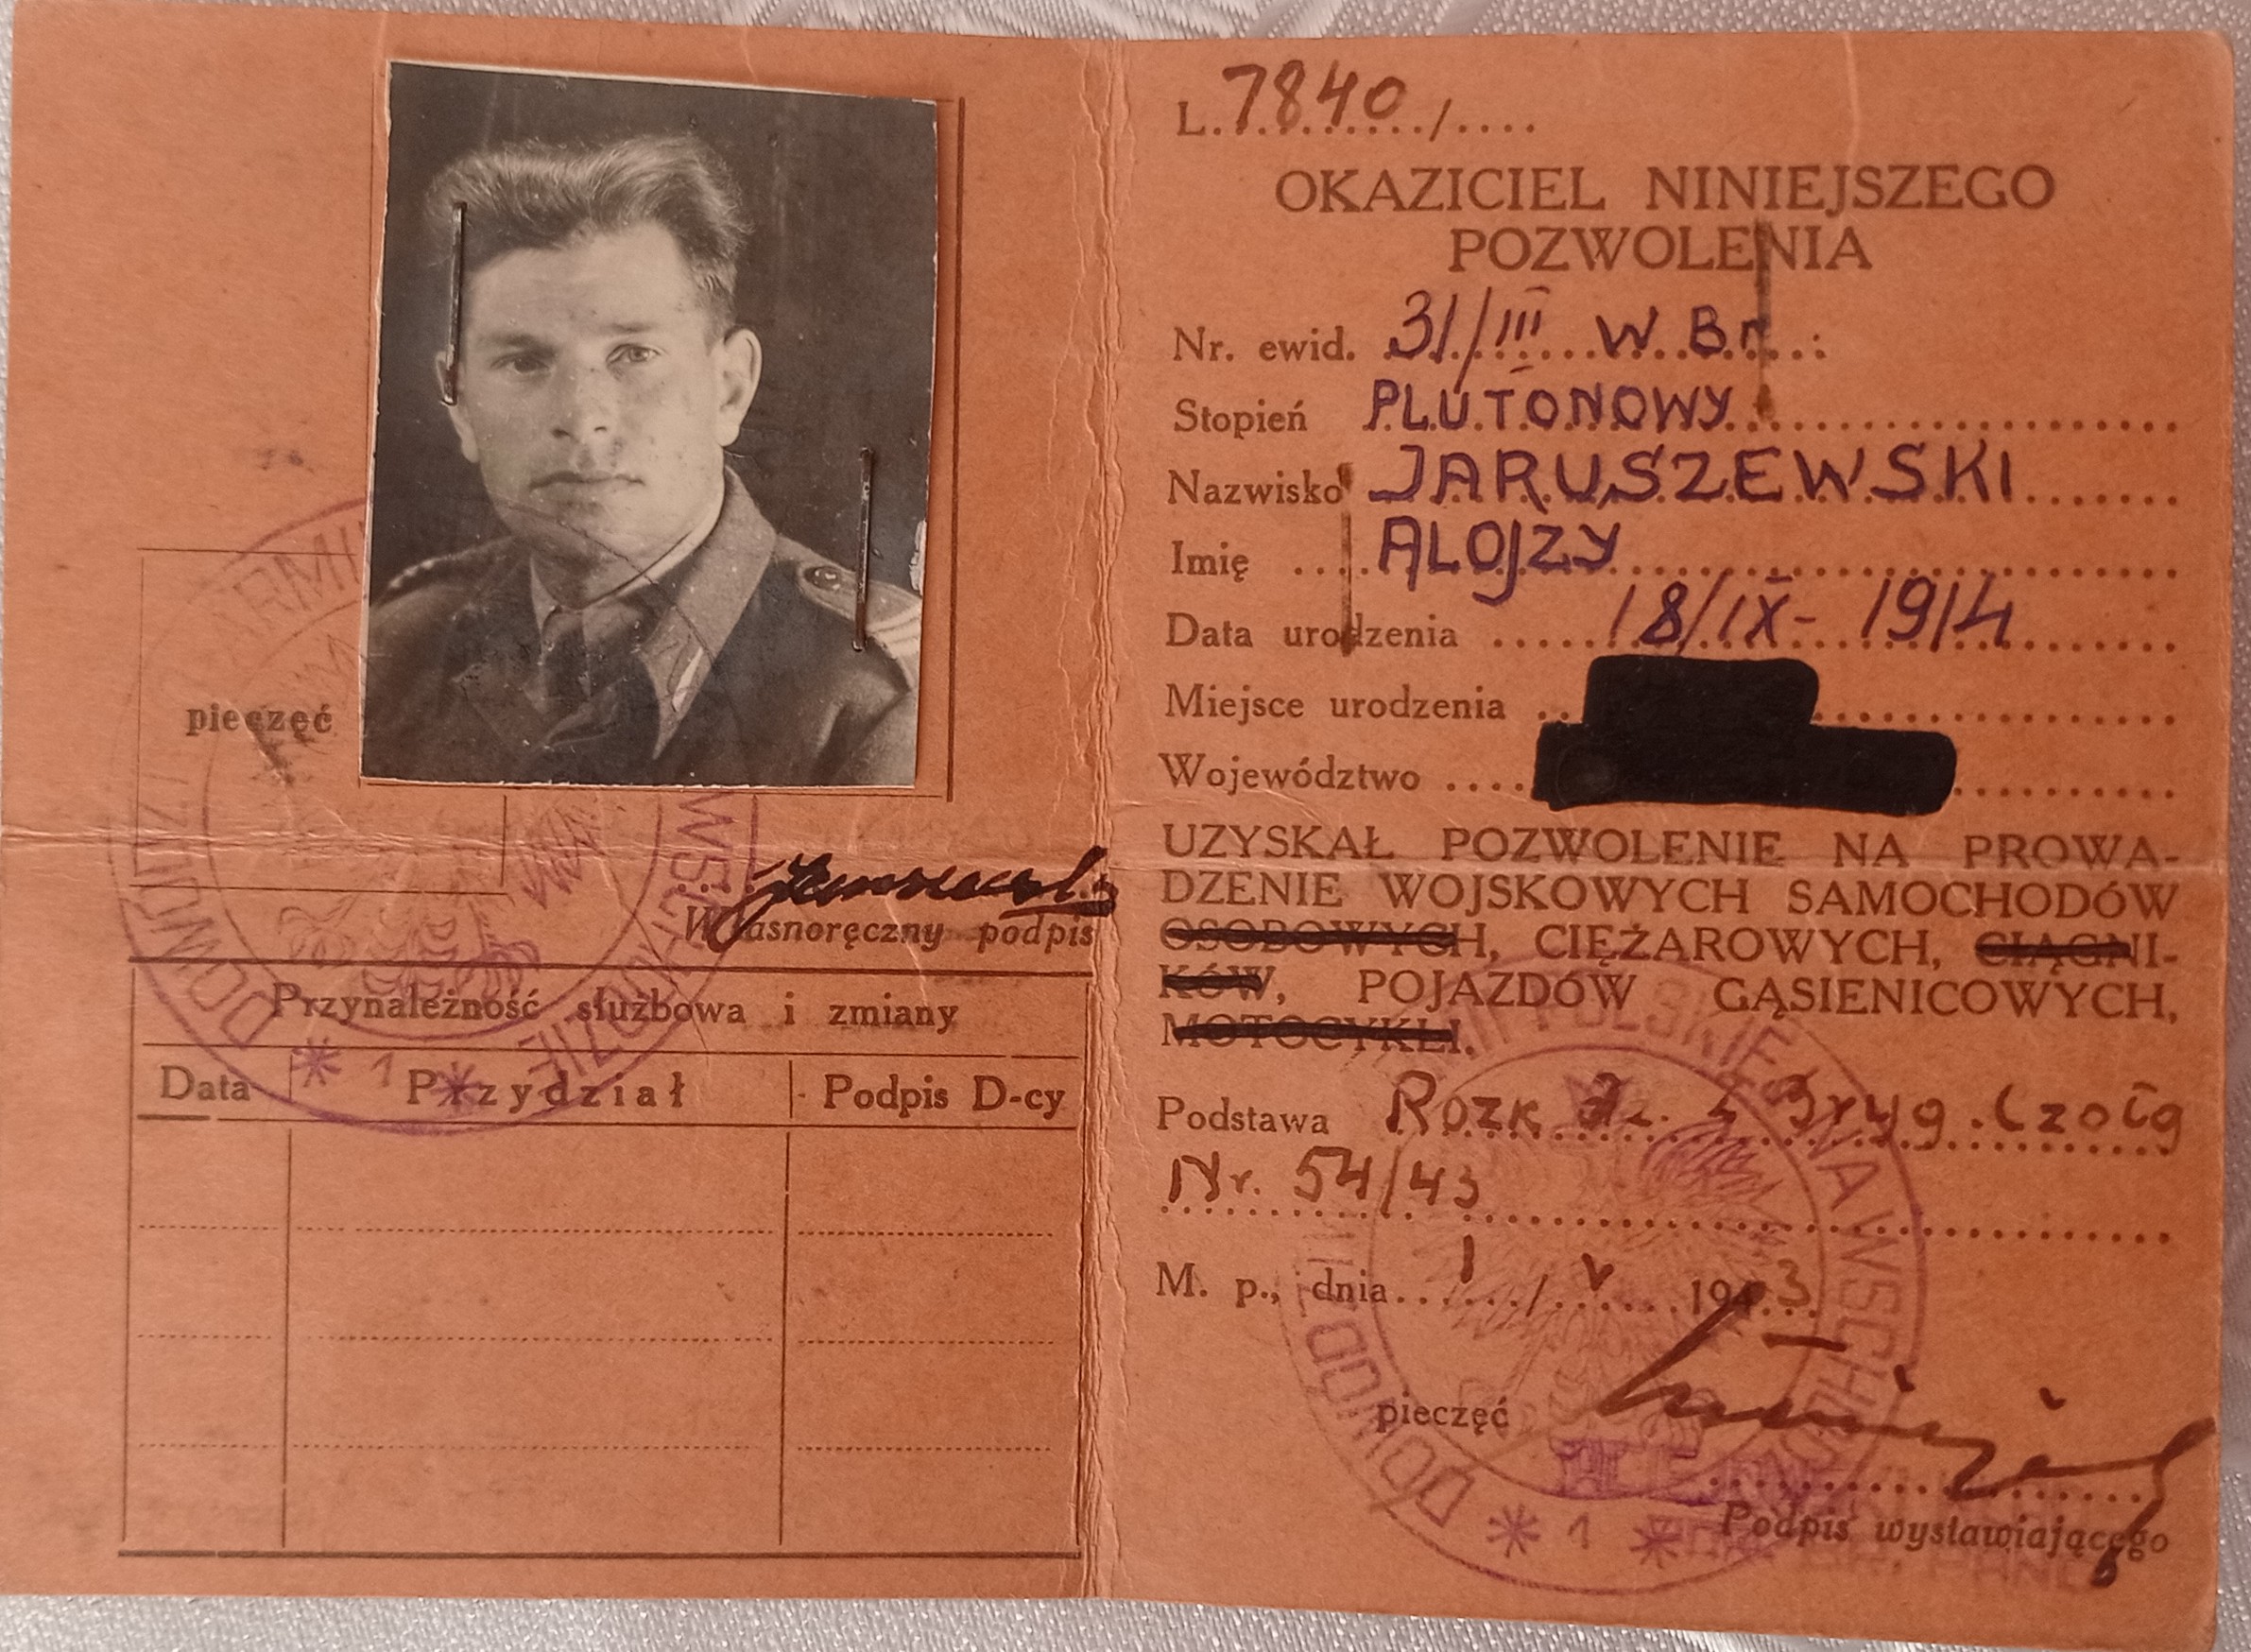 pieczęć
Własnoręczny podpis
Przynależność służbowa i zmiany
Data Przydział Podpis D-cy
L. 7840 /
OKAZICIEL NINIEJSZEGO
POZWOLENIA
Nr. ewid. 31/III W Br
Stopień PLUTONOWY
Nazwisko JARUSZEWSKI
Imię ALOJZY
Data urodzenia 18/IX- 1914
Miejsce urodzenia
Województwo
UZYSKAŁ POZWOLENIE NA PROWA-
DZENIE WOJSKOWYCH SAMOCHODÓW
OSOBOWYCH, CIĘŻAROWYCH, CIĄGNI-
KÓW, POJAZDÓW GĄSIENICOWYCH,
MOTOCYKLI.
Podstawa Rozk Bryg. Czołg
Nr. 54/43
M. p., dnia 1 / V 1943
pieczęć
Podpis wystawiającego
DOWÓDZTWO ARMII POLSKIEJ NA WSCHODZIE * 1 *